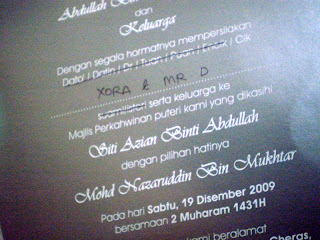 Abdullah Bin
dan
Keluarga
Dengan segala hormatnya mempersilakan
Dato' / Datin / Dr / Tuan / Puan / Encik / Cik
XORA & MR D
suami/isteri serta keluarga ke
Majlis Perkahwinan puteri kami yang dikasihi
Siti Azian Binti Abdullah
dengan pilihan hatinya
Mohd Nazaruddin Bin Mukhtar
Pada hari Sabtu, 19 Disember 2009
bersamaan 2 Muharam 1431H
kami beralamat
Cheras,